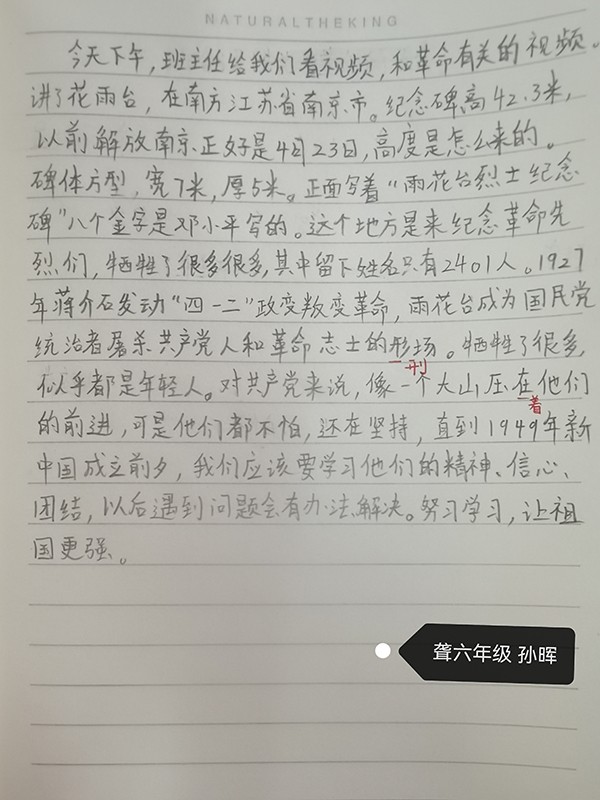 NATURALTHEKING
今天下午，班主任给我们看视频，和革命有关的视频。
讲了花雨台，在南方江苏省南京市。纪念碑高42.3米，
以前解放南京正好是4月23日，高度是怎么来的。
碑体方型，宽7米，厚5米。正面写着“雨花台烈士纪念
碑”八个金字是邓小平写的。这个地方是来纪念革命先
烈们，牺牲了很多很多，其中留下姓名只有2401人。1927
年蒋介石发动“四一二”政变叛变革命，雨花台成为国民党
统治者屠杀共产党人和革命志士的形场。牺牲了很多，
刑
似乎都是年轻人。对共产党来说，像一个大山压在他们
着
的前进，可是他们都不怕，还在坚持，直到1949年新
中国成立前夕，我们应该要学习他们的精神、信心、
团结，以后遇到问题会有办法解决。努习学习，让祖
国更强。
聋六年级 孙晖